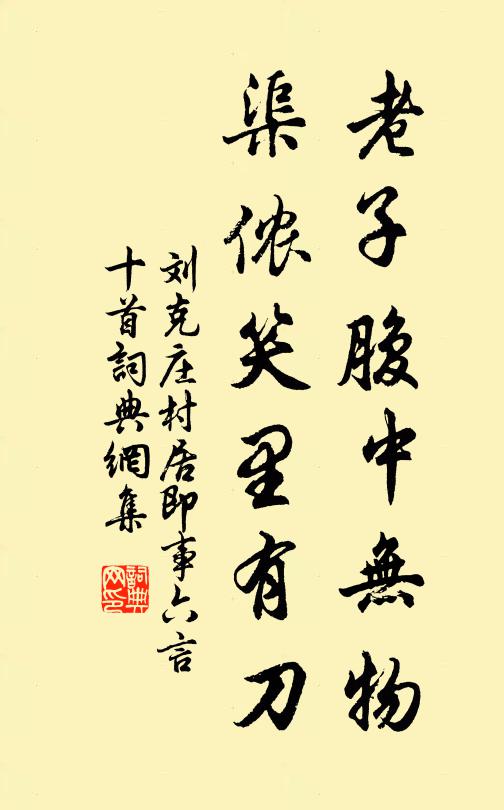 老子腹中無物
渠侬笑里有刀
刘克庄村居即事六言
十首詞典網集
詞典网印